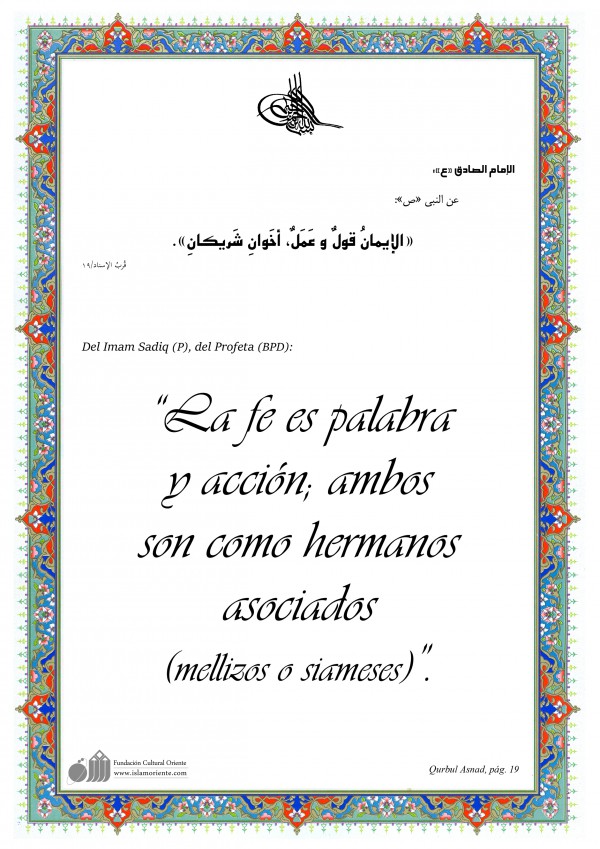 الإمام الصادق «ع»
عن النبی «ص»:
«الإیمانُ قولٌ و عَمَلٌ، أخَوانِ شَریكانِ».
قُربُ الإسناد/١٩
Del Imam Sadiq (P), del Profeta (BPD):
“La fe es palabra
y acción; ambos
son como hermanos
asociados
(mellizos o siameses)”.
Fundación Cultural Oriente
www.islamoriente.com
Qurbul Asnad, pág. 19